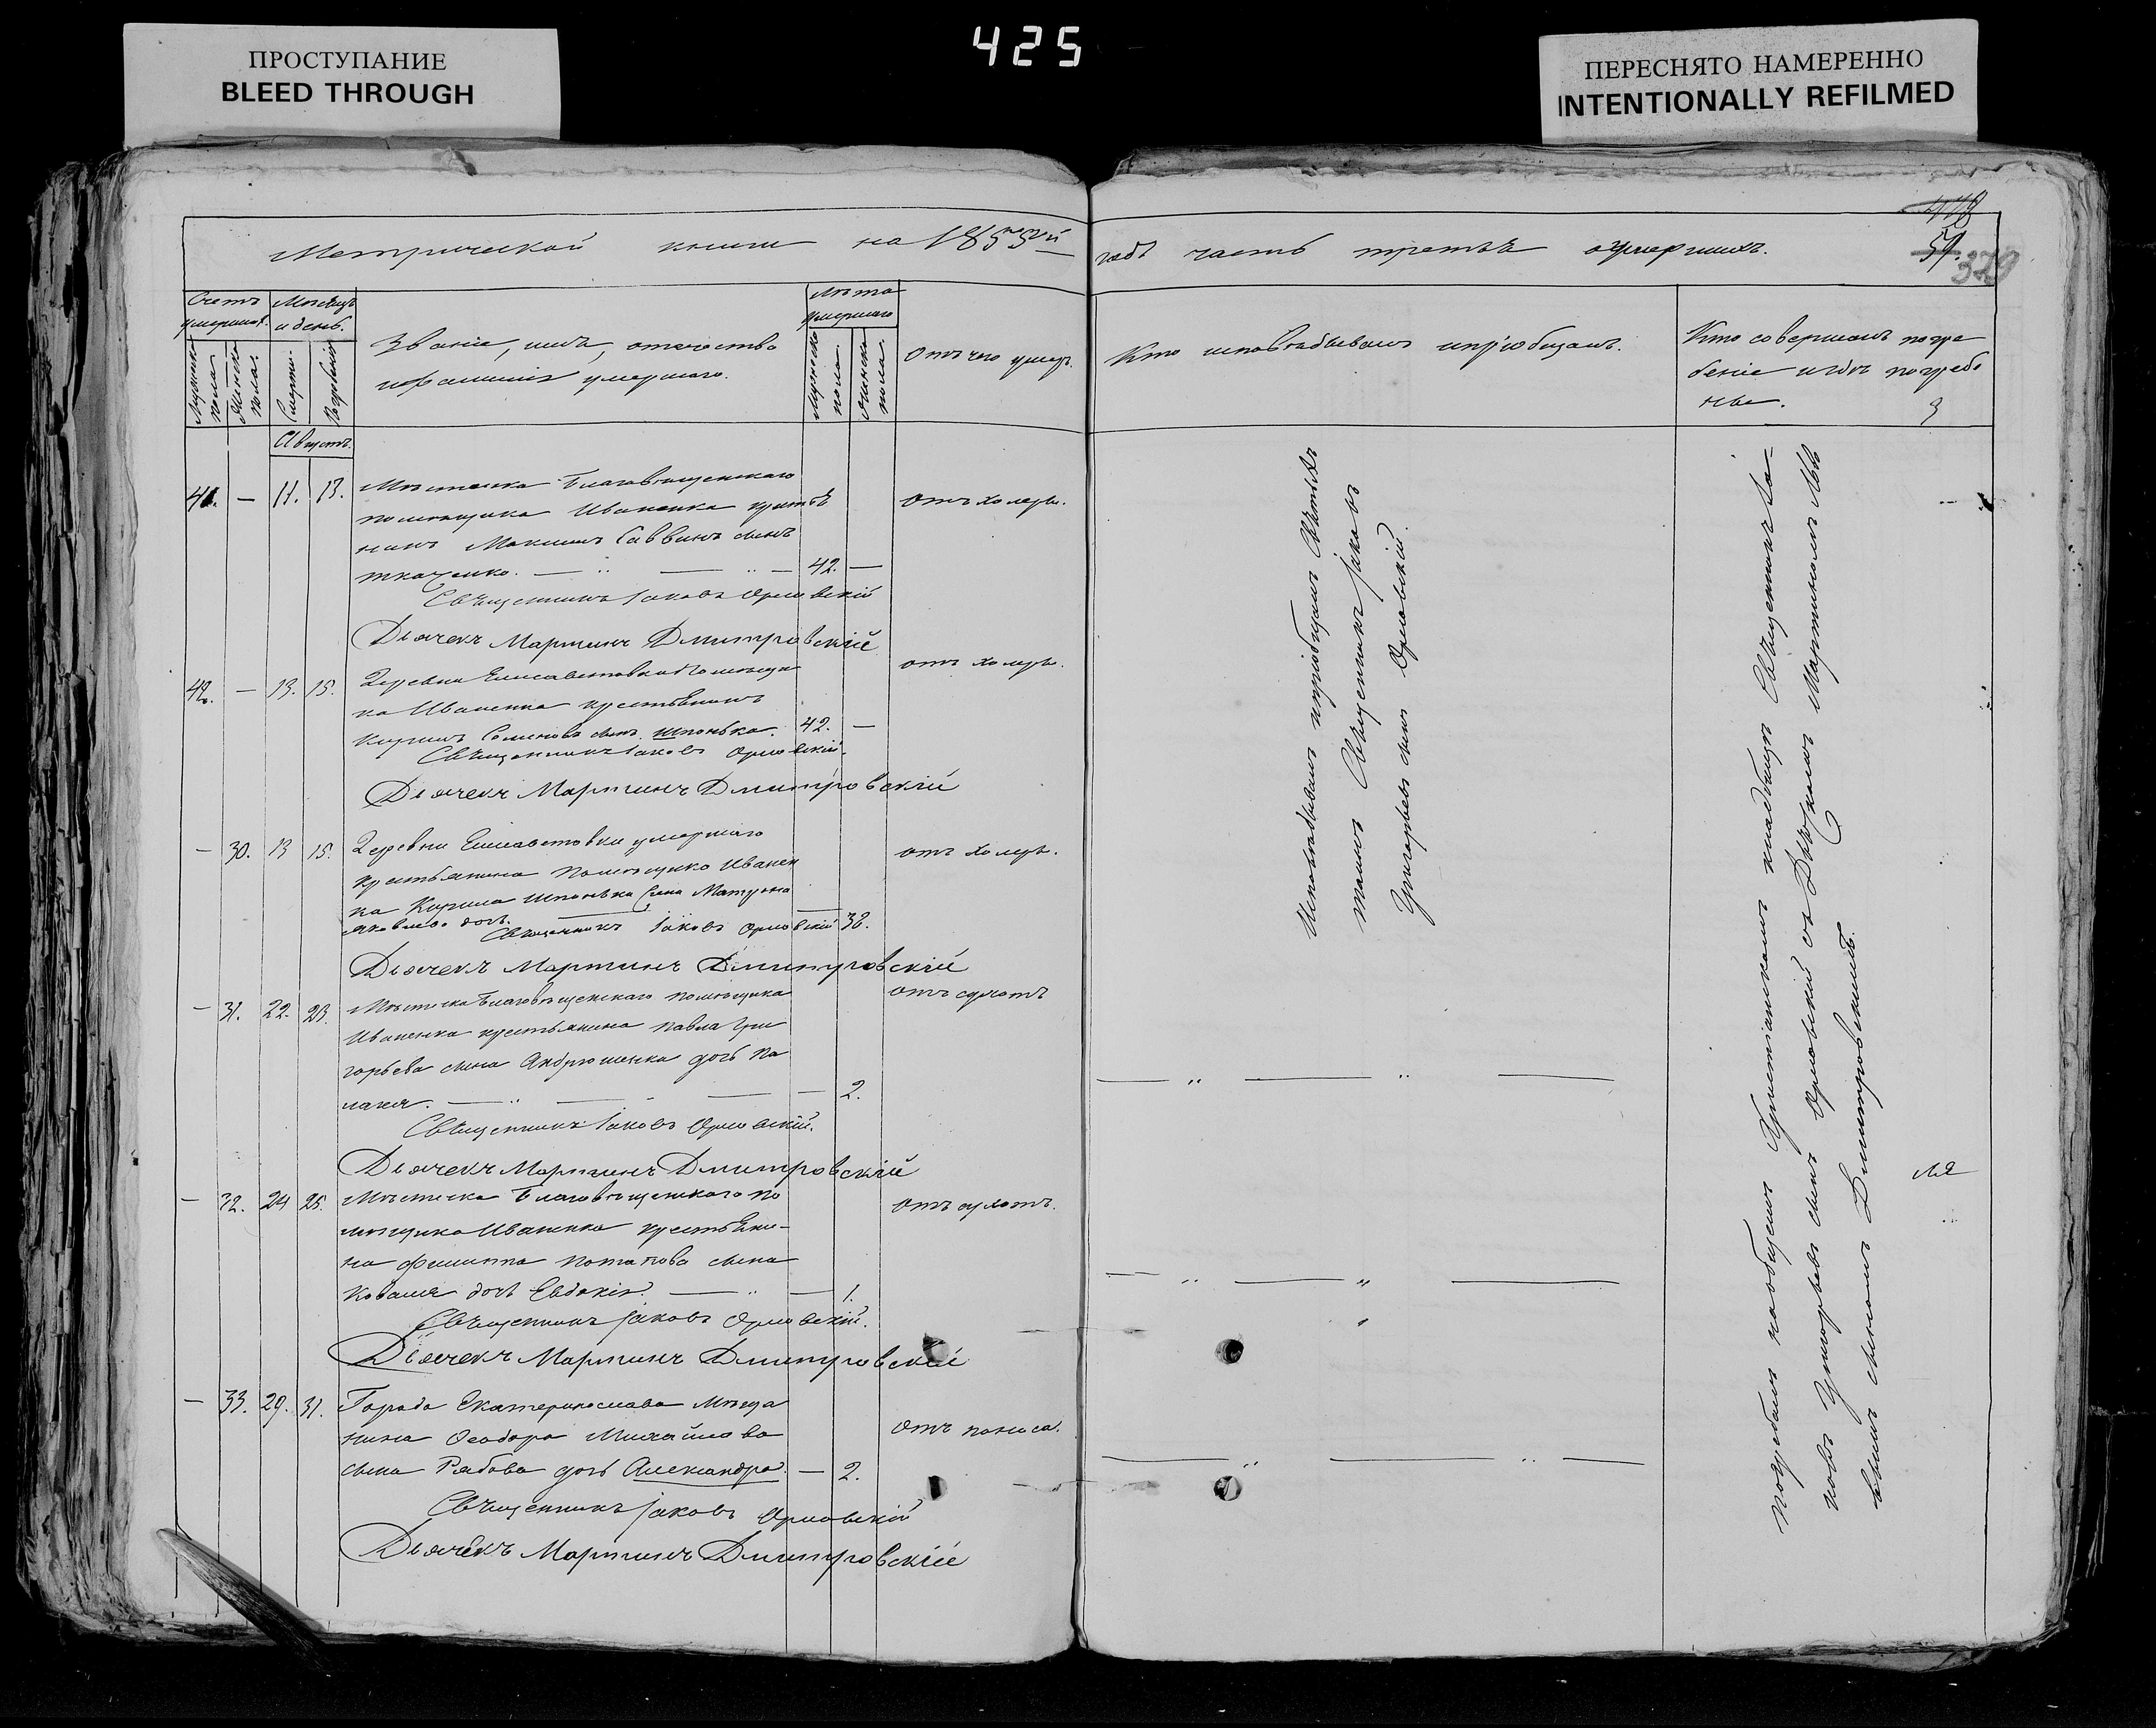 425
ПРОСТУПАНИЕ
BLEED THROUGH
ПЕРЕСНЯТО НАМЕРЕННО
INTENTIONALLY REFILMED
Метрической книги на 1855й
годъ часть третья о умершихъ.
378
51.
379
Счетъ умершихъ.
Мужеска пола
Женска пола
Месяцъ и день.
Смерти.
Погребенія
Званіе, имя, отечество
и фамилія умершаго.
Лета умершаго
Мужеска пола
Женска пола.
Отъ чего умеръ.
Кто исповѣдывалъ и пріобщалъ.
Кто совершалъ погре
беніе и гдѣ погребе
ны.
Августъ.
41. — 11. 13.
Мѣстечка Благовѣщенскаго
помѣщика Иваненка крестья
нинъ Максимъ Саввинъ сынъ
Ткаченко. — 42. —
отъ холеры.
Священникъ Іаковъ Орловскій
Дьячекъ Мартинъ Дмитровскій
42. — 13. 15.
Деревни Елисаветовки помѣщи
ка Иваненка крестьянинъ
Кирилъ Семеновъ сынъ Шпонька. 42. —
отъ холеры.
Священникъ Іаковъ Орловскій.
Дьячекъ Мартинъ Дмитровскій
— 30. 13 15.
Деревни Елисаветовки умершаго
крестьянина помѣщика Иванен
ка Кирила Шпоньки жена Матрона
Яковлева дочь. — 38.
отъ холеры.
Священникъ Іаковъ Орловскій
Дьячекъ Мартинъ Дмитровскій
— 31. 22. 23.
Мѣстечка Благовѣщенскаго помѣщика
Иваненка крестьянина Павла Гри
горьева сына Андрюшенка дочь Па
лагея. — 2.
отъ сухотъ
Священникъ Іаковъ Орловскій.
Дьячекъ Мартинъ Дмитровскій
— 32. 24 25.
Мѣстечка Благовѣщенскаго по
мѣщика Иваненка крестьяни-
на Филиппа Потапова сына
Коваля дочь Евдокія. — 1.
отъ сухотъ.
Священникъ Іаковъ Орловскій.
Дьячекъ Мартинъ Дмитровскій
— 33. 29. 31.
Города Екатеринослава мѣща
нина Ѳеодора Михайлова
сына Рябова дочь Александра. — 2.
отъ поноса.
Священникъ Іаковъ Орловскій
Дьячекъ Мартинъ Дмитровскій
Исповѣдывалъ и пріобщалъ Святыхъ
таинъ Священникъ Іаковъ
Григорьевъ сынъ Орловскій.
Погребалъ на общемъ христіанскомъ кладбищѣ Священникъ Іа-
ковъ Григорьевъ сынъ Орловскій съ Дьячкомъ Мартиномъ
вымъ сыномъ Дмитровскимъ.